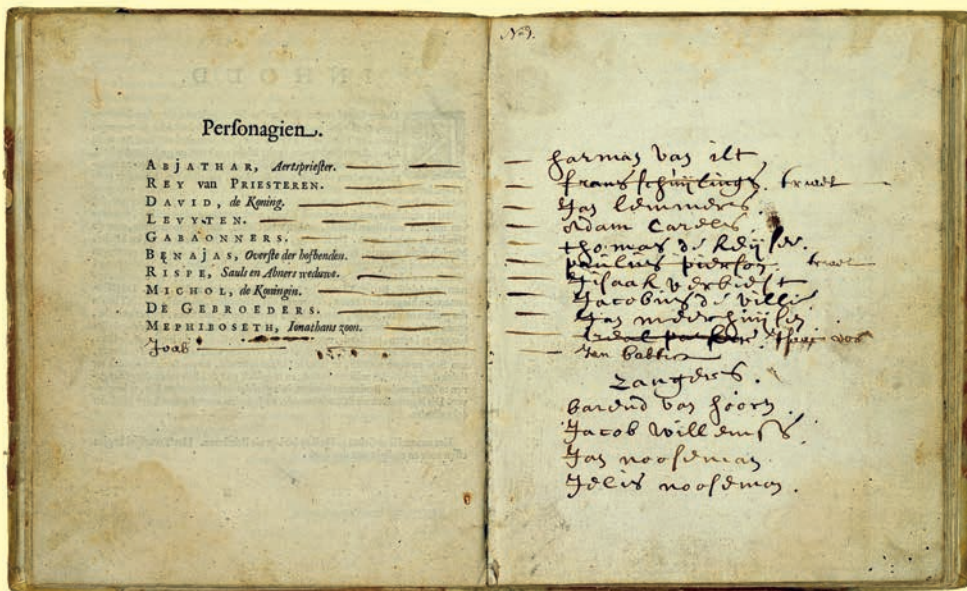 Personagien.
ABJATHAR, Aertspriester.
REY van PRIESTEREN.
DAVID, de Koning.
LEVYTEN.
GABAONNERS.
BENAJAS, Overste der hofbenden.
RISPE, Sauls en Abners weduwe.
MICHOL, de Koningin.
DE GEBROEDERS.
MEPHIBOSETH, Ionathans zoon.
Joab
harman van ilt
frans schuijlings. tweet
Jan lemmers.
Adam Carels.
thomas de keijser.
paulus pierson. tweet
Isaak verbiest
Jacobus de ville
Jan meerhuijsen
Jan babtist
zangers.
barend van hoorn.
Jacob willemss.
Jan nooseman.
Jelis nooseman.